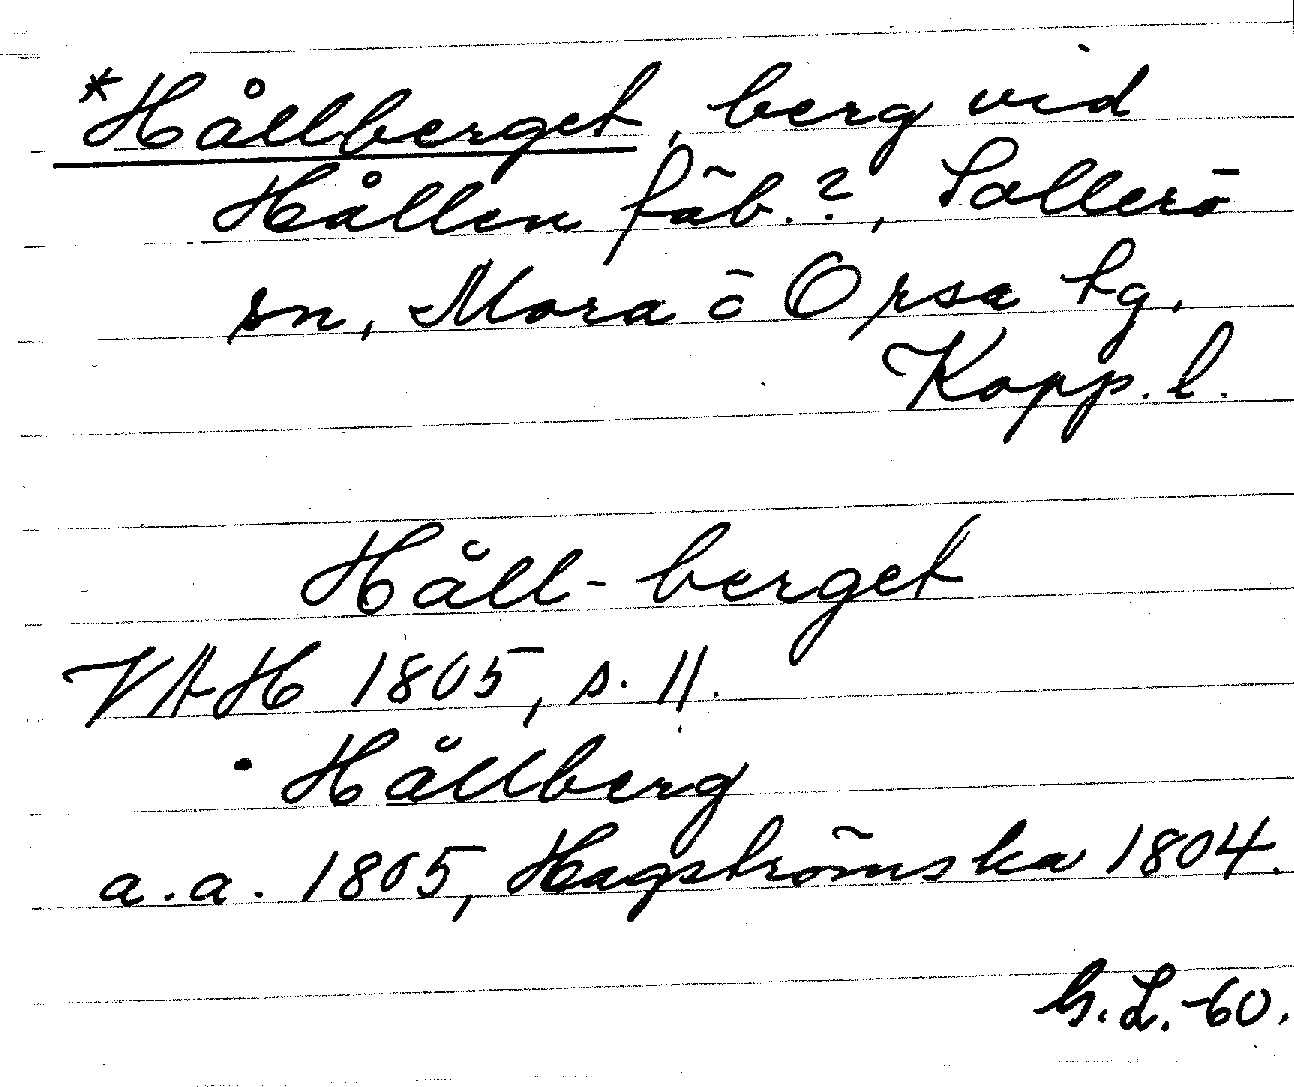 *Hållberget, berg vid
Hållen fäb.?, Sollerö
sn, Mora o Orsa tg,
Kopp. l.
Håll-berget
VAH 1805, s. 11.
Hållberg
a.a. 1805, Hagströmska 1804.
G.L.-60.